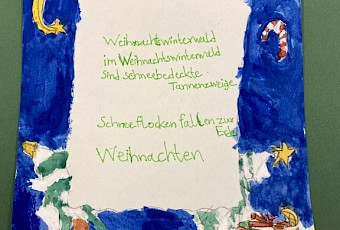 Weihnachtswinterwald
im Weihnachtswinterwald
sind schneebedeckte
Tannenzweige.
Schneeflocken fallen zur
Erde
Weihnachten